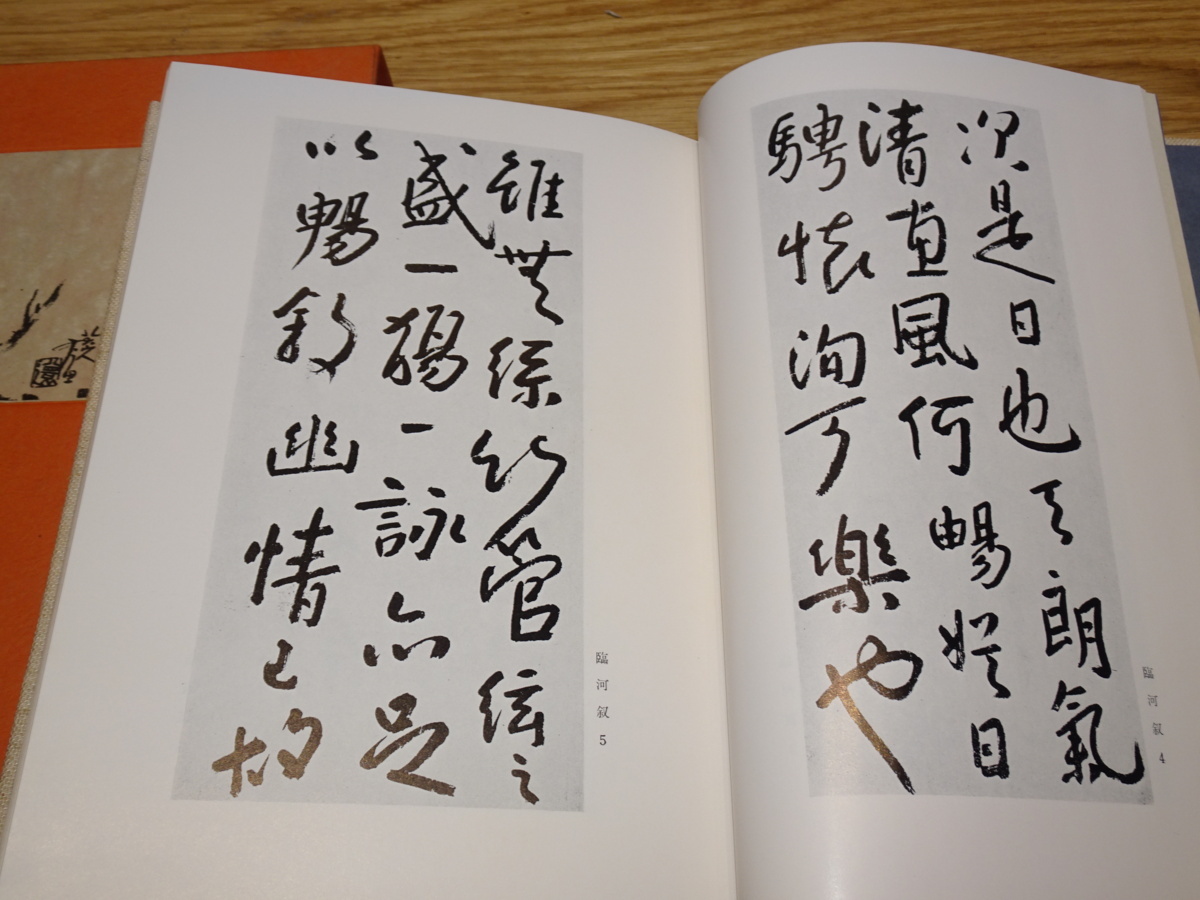 次是日也天朗氣
清惠風何暢娛目
騁懷洵可樂也
臨河叙 4
雖無絲竹管絃之
盛一觴一詠亦足
以暢敘幽情已故
臨河叙 5